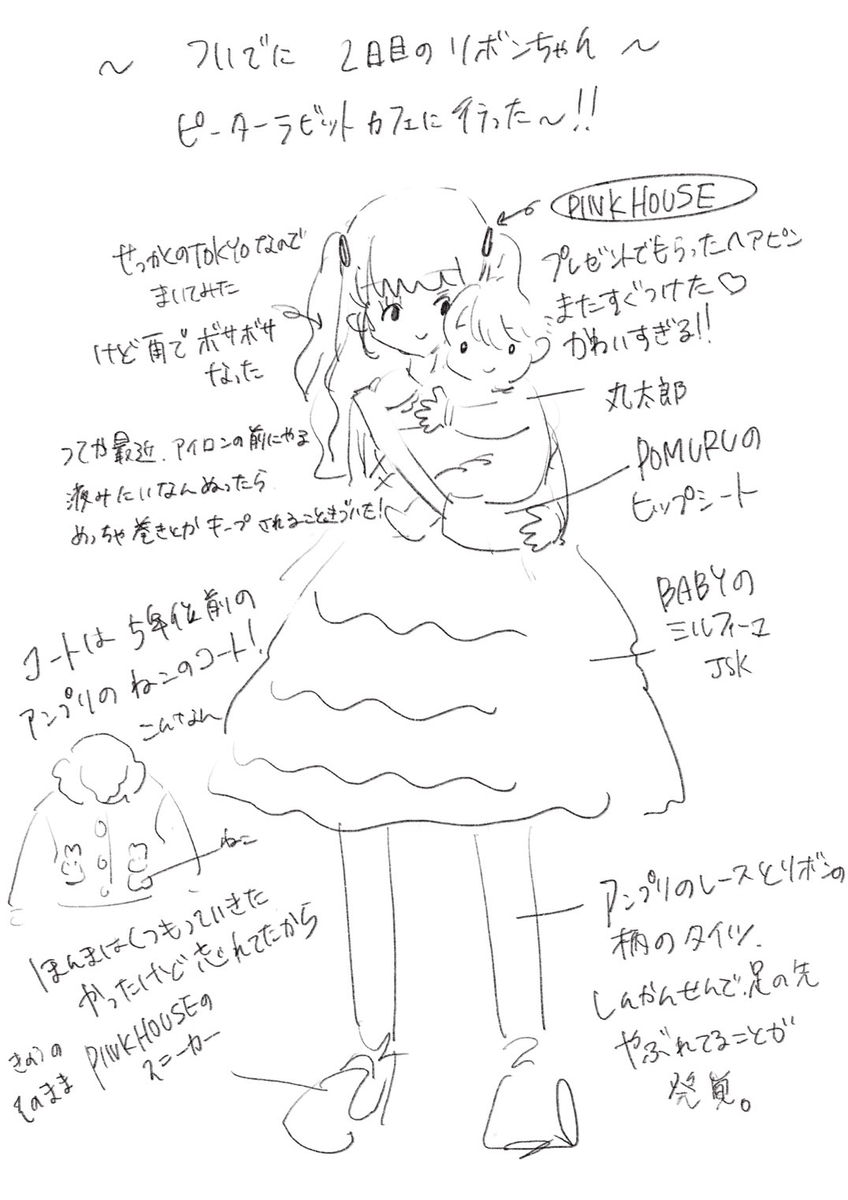 〜 ついでに 2日目のリボンちゃん 〜
ピーターラビットカフェに行った〜!!
PINKHOUSE
プレゼントでもらったヘアピン
またすぐつけた♡
かわいすぎる!!
せっかくのTOKYOなので
まいてみた
けど雨でボサボサ
なった
丸太郎
つてか最近、アイロンの前にやる
液みたいなんぬったら
めっちゃ巻きとかキープされることきづいた!
POMURUの
ヒップシート
BABYの
ミルフィーユ
JSK
コートは5年位前の
アンプリのねこのコート!
こんなん
ねこ
ほんまはくつもっていきた
かったけど忘れてたから
きのうの
そのまま
PINKHOUSEの
スニーカー
アンプリのレースとリボンの
柄のタイツ、
しんかんせんで、足の先
やぶれてることが
発覚。